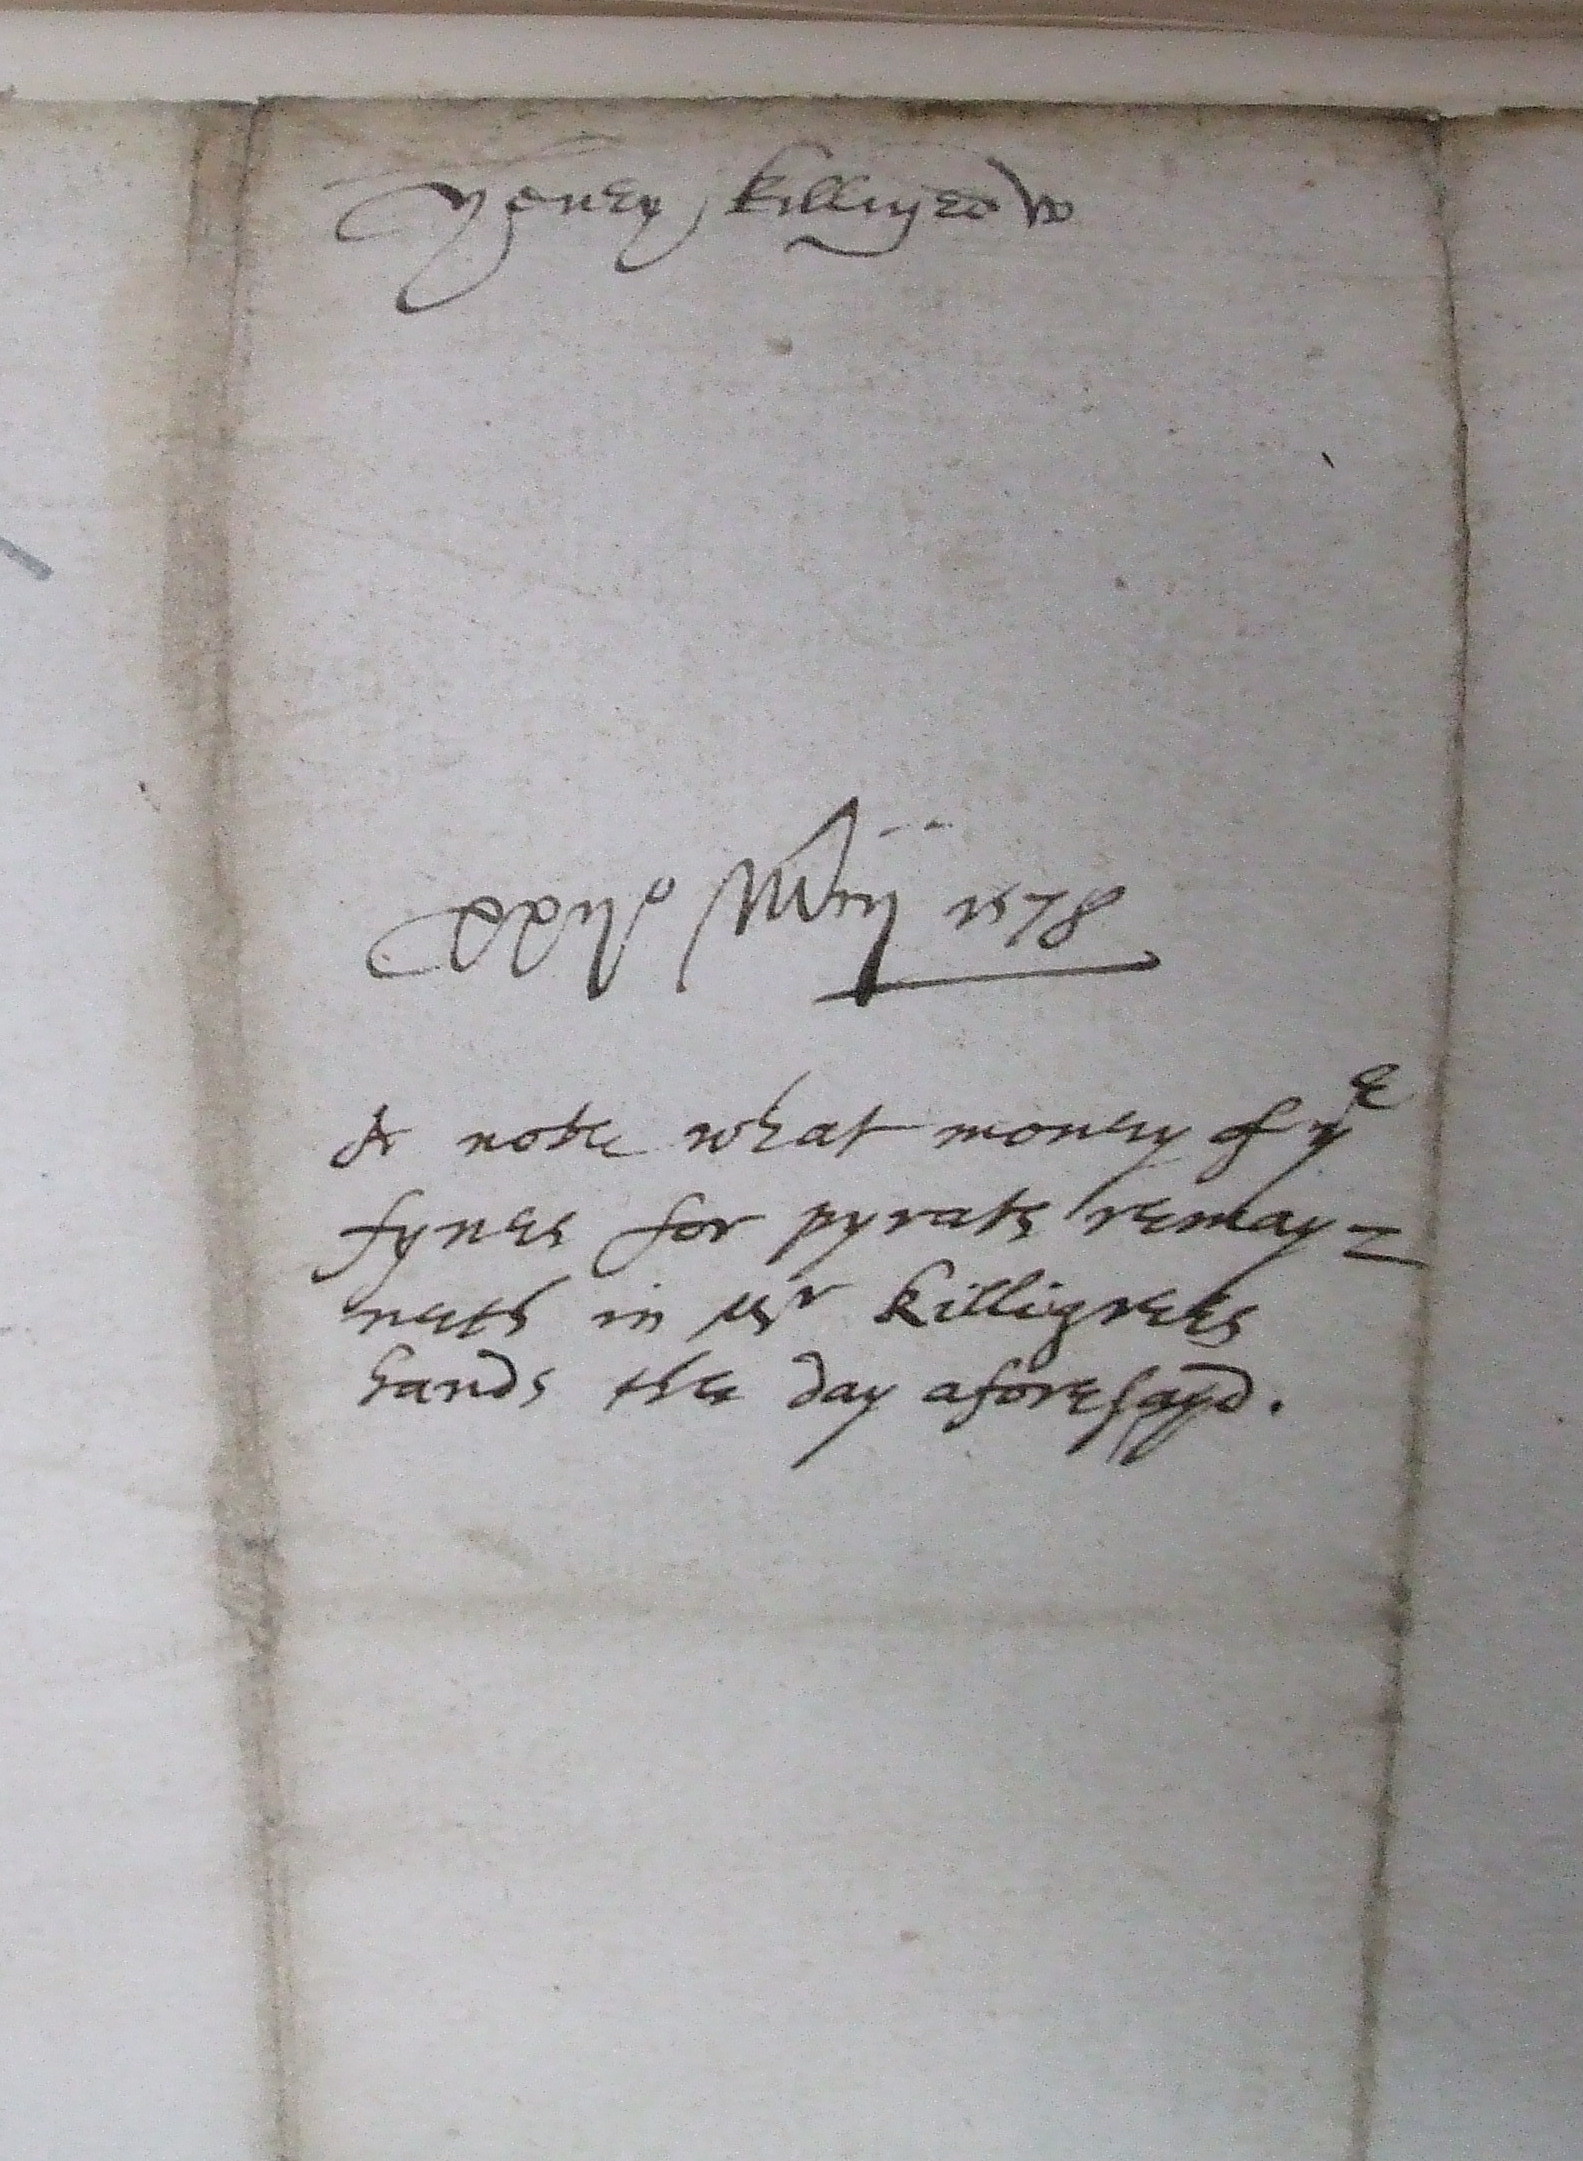 Henry killigrew
Maij 1578
A note what money of ye
fynes for pyrats remay=
neth in Mr Killigrews
hands the day aforesayd.